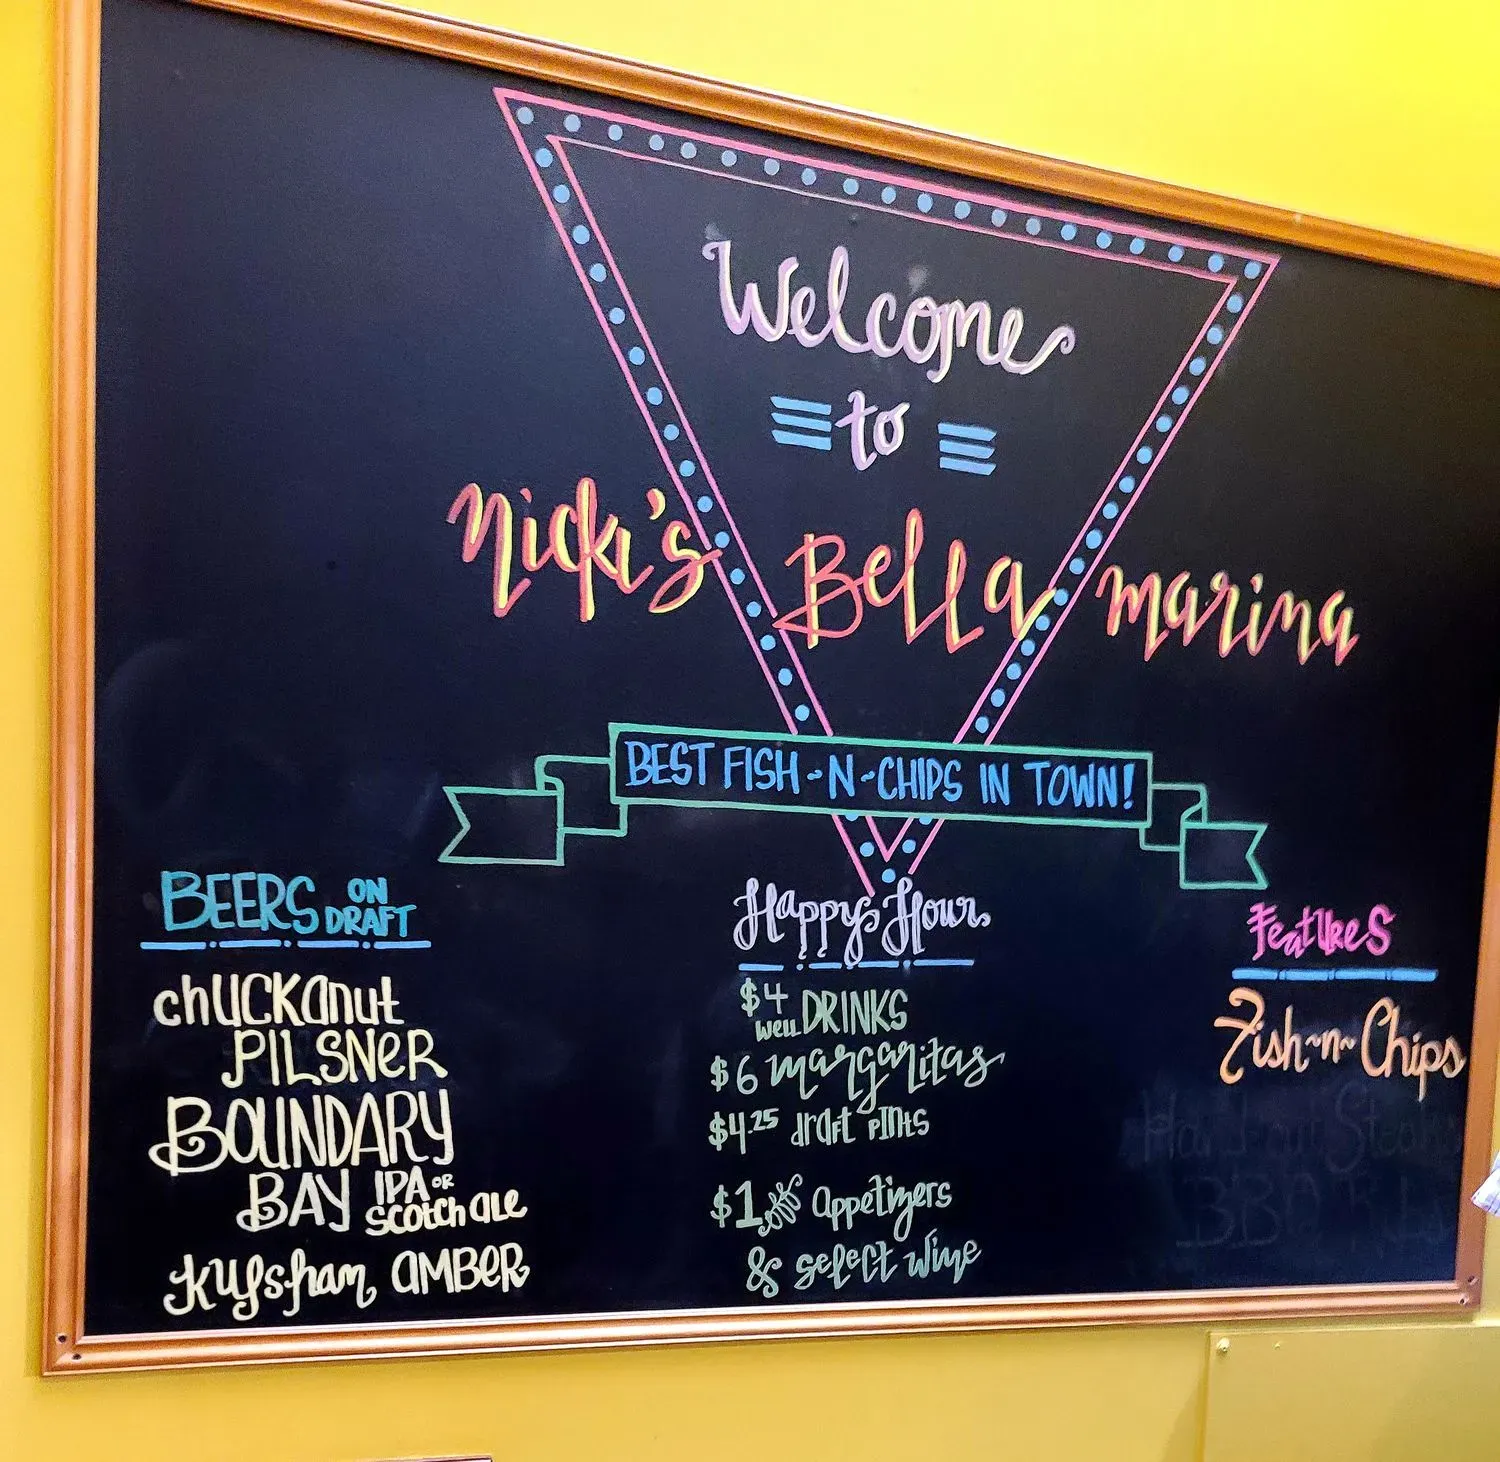 Welcome
to
Nicki's Bella Marina
BEST FISH~N~CHIPS IN TOWN!
BEERS ON DRAFT
chuckanut
PILSNER
BOUNDARY
BAY IPA OR
Scotch ALE
Kulshan AMBER
Happy Hour
$4 Well DRINKS
$6 margaritas
$4.25 draft pints
$1 off appetizers
& select wine
Features
Fish~n~Chips
BBQ Ribs